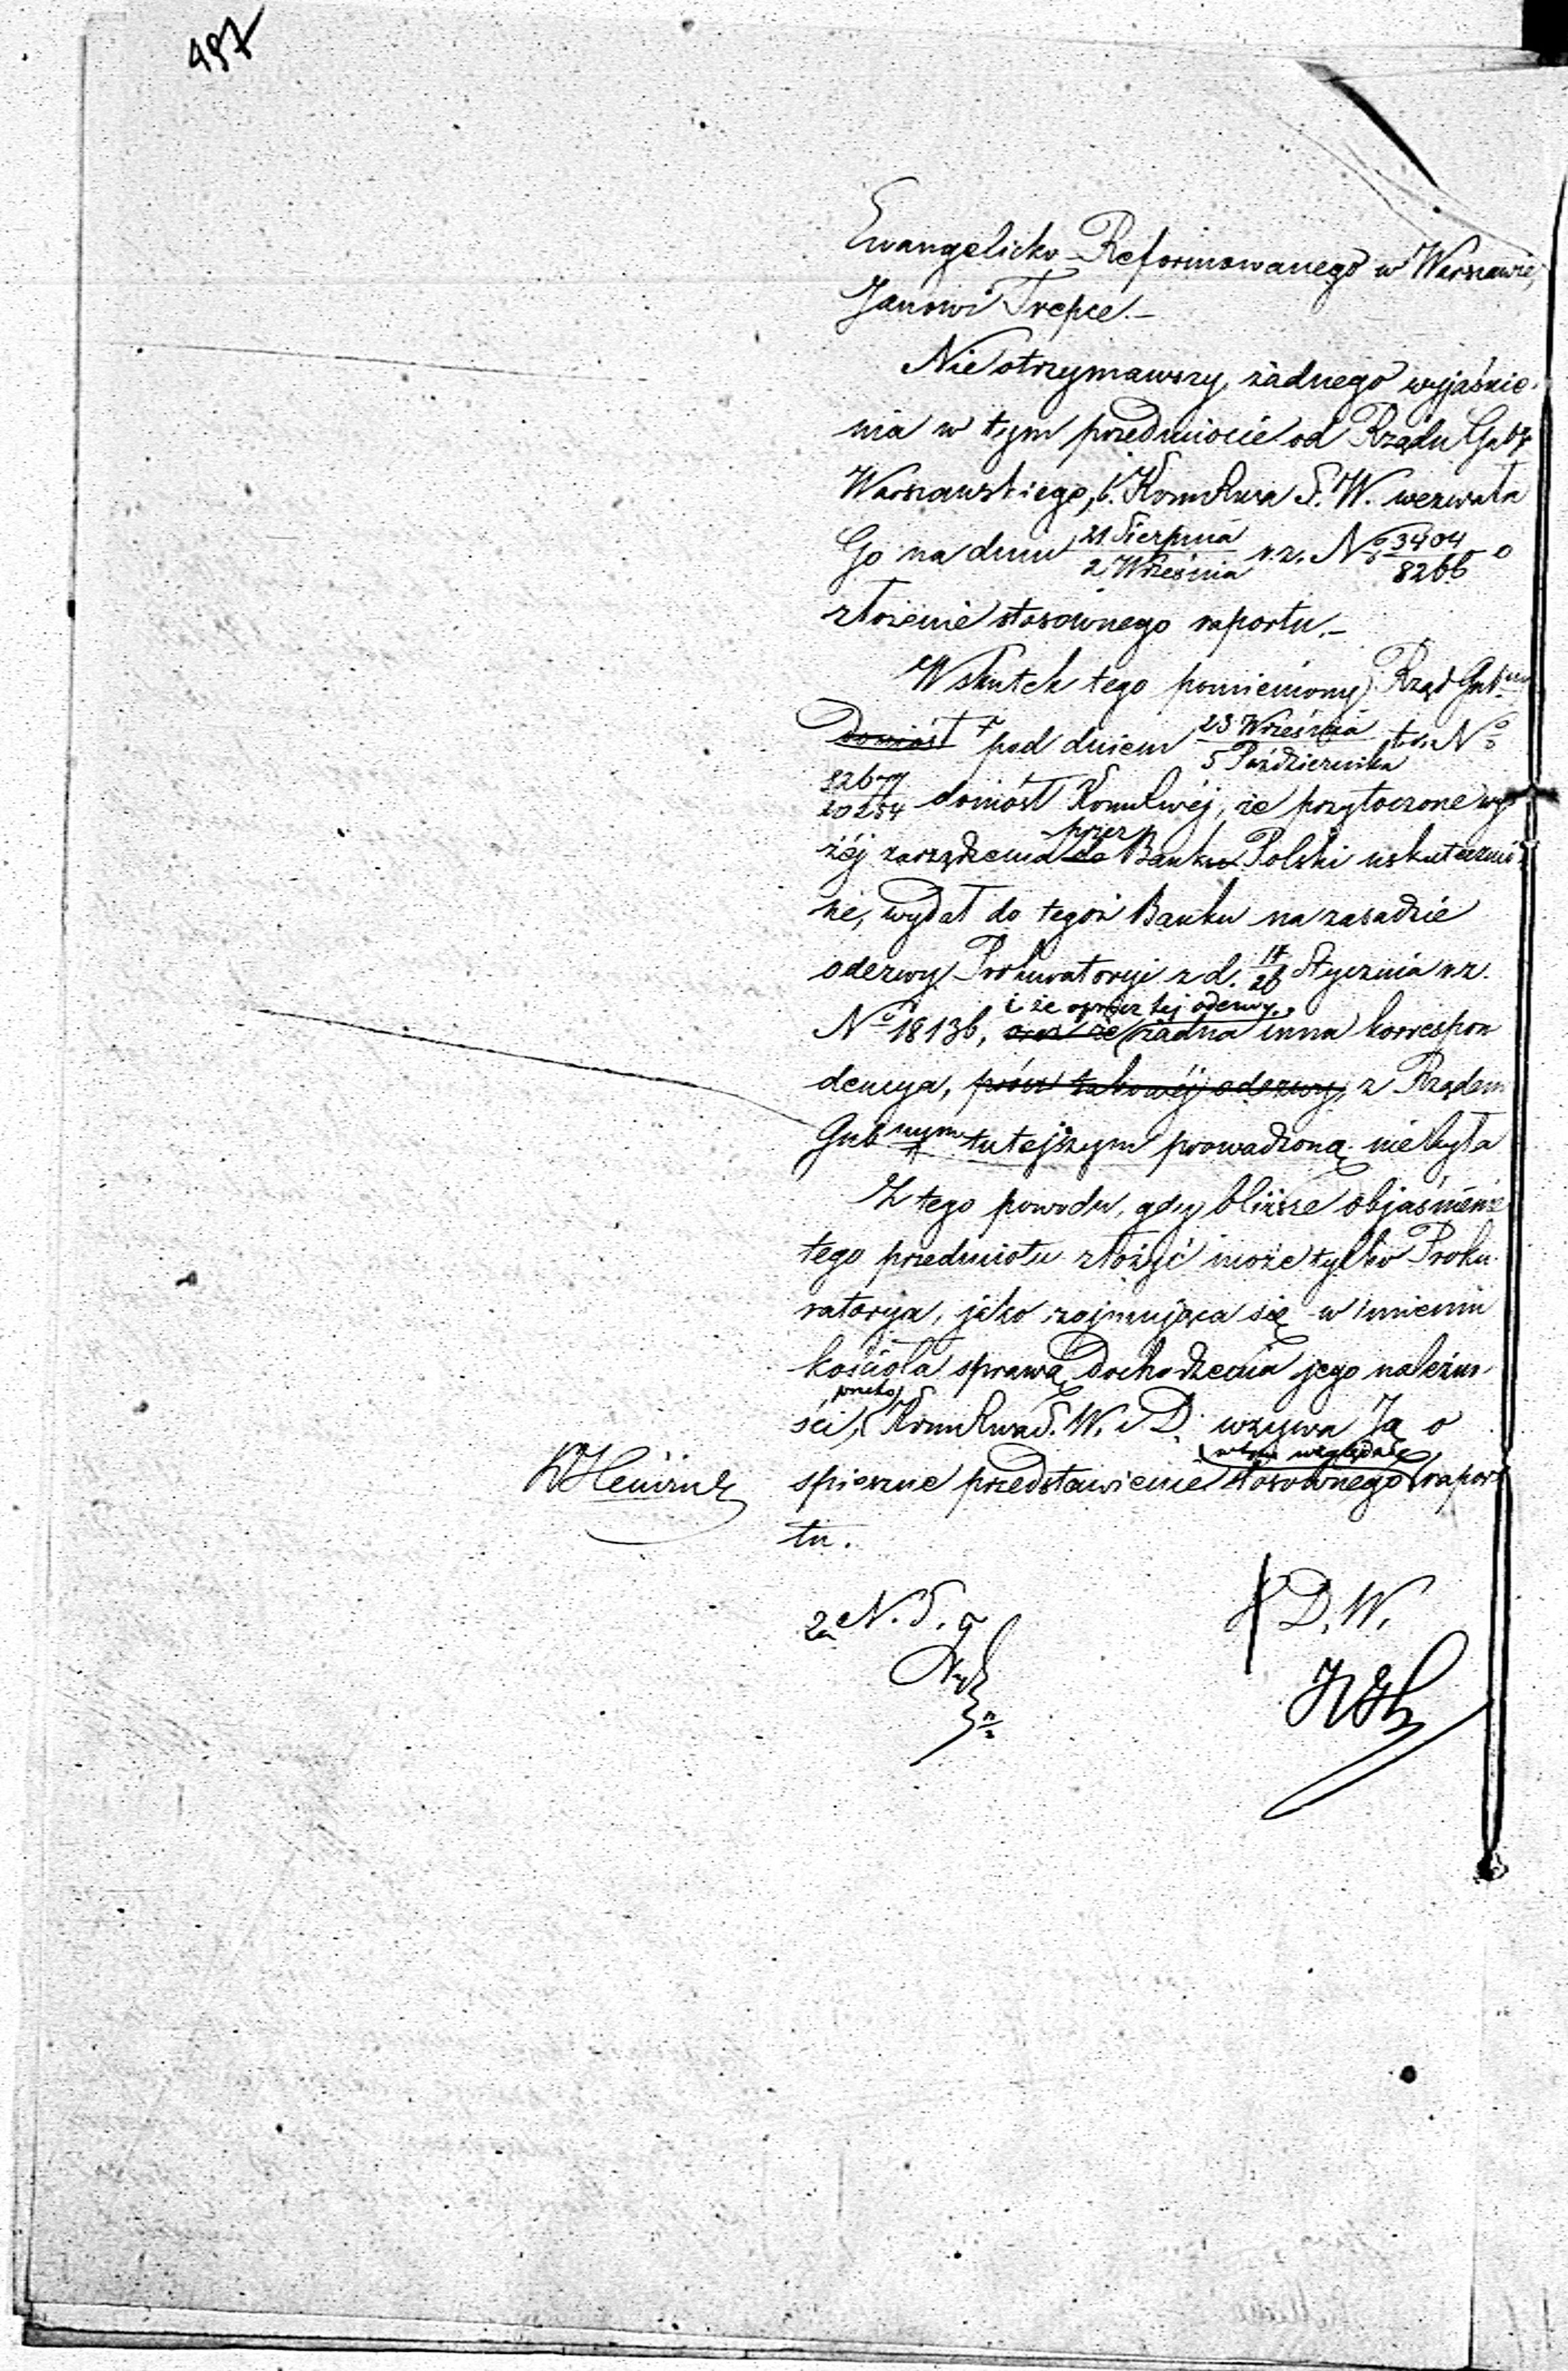 497
Ewangelicko-Reformowanego w Warszawie,
Janowi Trepce.–
Nie otrzymawszy żadnego wyjaśnie-
nia w tym przedmiocie od Rządu Gub
Warszawskiego, b. S. W. wezwała
Go na dniu 21 Sierpnia / 2 Września r.z. No 3404 / 8266 o
złożenie stosownego raportu.–
Wskutek tego pomieniony Rząd Gub
doniósł pod dniem 23 Września / 5 Października t.r. No
doniósł, że przytoczone wy
żéj zarządzenia do przez Banku Polski uskutecznio
ne, wydał do tegoż Banku na zasadzie
odezwy Prokuratoryi z d. Stycznia r.z.
No 18136, i że oprócz tej odezwy, oraz że żadna inna korrespon
dencya, prócz takowéj odezwy, z Rządem
Gubnym tutejszym prowadzoną nie była
Z tego powodu, gdy bliższe objaśnienie
tego przedmiotu złożyć może tylko Proku-
ratorya, jako zajmująca się w imieniu
kościoła sprawą dochodzenia jego należno-
ści, przeto S. W. i D. wzywa Ją o
spieszne przedstawienie w tym względzie stosownego rapor
tu.
za N. S.
D. W.